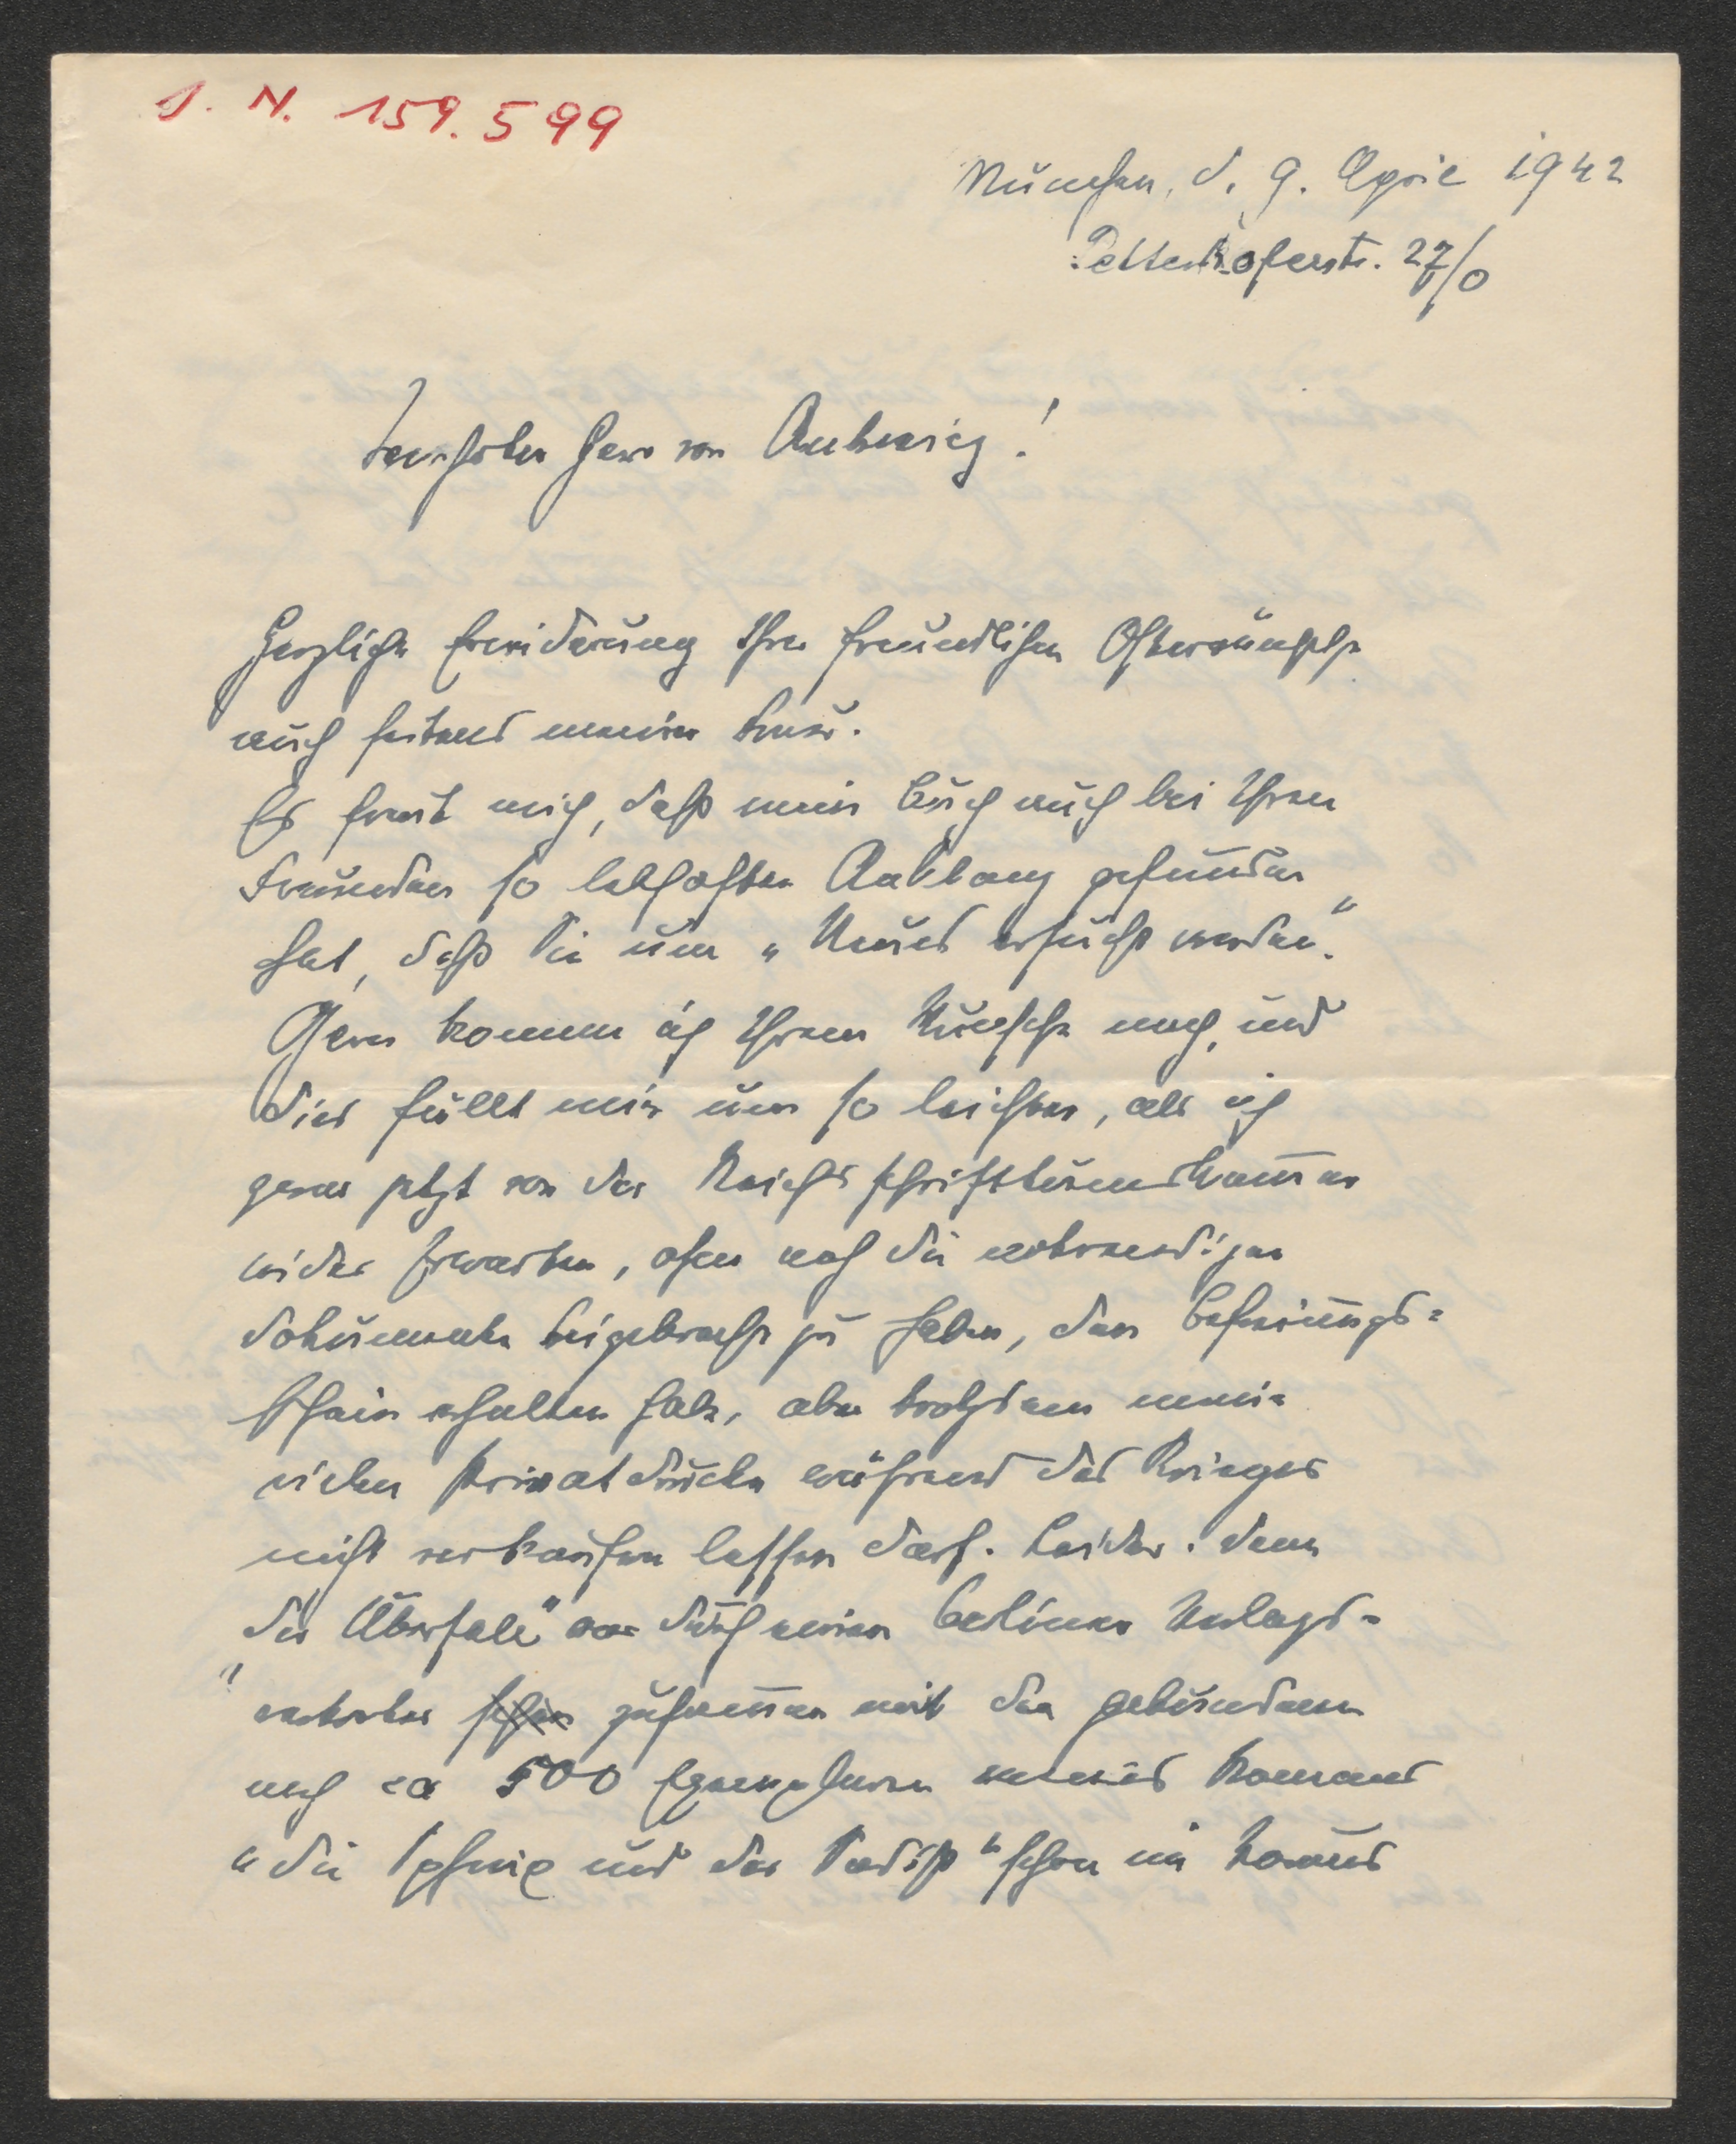 J. N. 159.599
München, d. 9. April 1942
Pettenkoferstr. 27/0
Verehrter Herr von!
Herzliche Erwiderung Ihrer freundlichen Osterwünsche
auch seitens meiner Frau.
Es freut mich, daß mein Buch auch bei Ihren
Freunden so lebhaften Anklang gefunden
hat, daß Sie um „Neues ersucht werden“.
Gern komme ich Ihrem Wunsche nach, und
dies fällt mir um so leichter, als ich
zwar jetzt von der Reichsschrifttumskammer
wider Erwarten, ohne noch die notwendigen
Dokumente beigebracht zu haben, den Befreiungs=
schein erhalten habe, aber trotzdem meine
vielen Privatdrucke während des Krieges
nicht verkaufen lassen darf. Leider. Denn
„Der Überfall“ war durch einen Berliner Verlags-
vertreter schon zusammen mit den gebundenen
noch ca 500 Exemplaren meines Romans
„Die Sphinx und der Sadist“ schon im